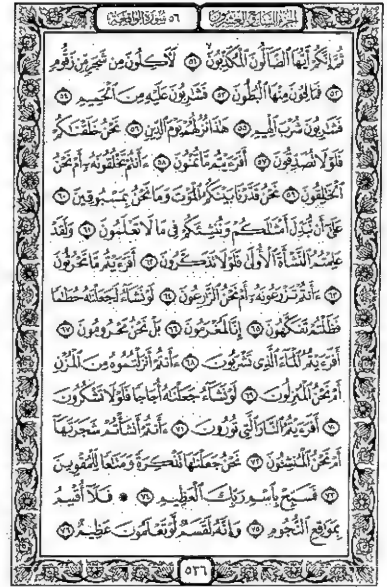 الجزء السابع والعشرون ٥٦ سورة الواقعة
ثُمَّ إِنَّكُمْ أَيُّهَا ٱلضَّآلُّونَ ٱلْمُكَذِّبُونَ ٥١ لَأَكِلُونَ مِن شَجَرٍ مِّن زَقُّومٍ
٥٢ فَمَالِـُٔونَ مِنْهَا ٱلْبُطُونَ ٥٣ فَشَٰرِبُونَ عَلَيْهِ مِنَ ٱلْحَمِيمِ ٥٤
فَشَٰرِبُونَ شُرْبَ ٱلْهِيمِ ٥٥ هَٰذَا نُزُلُهُمْ يَوْمَ ٱلدِّينِ ٥٦ نَحْنُ خَلَقْنَٰكُمْ
فَلَوْلَا تُصَدِّقُونَ ٥٧ أَفَرَءَيْتُم مَّا تُمْنُونَ ٥٨ ءَأَنتُمْ تَخْلُقُونَهُۥٓ أَمْ نَحْنُ
ٱلْخَٰلِقُونَ ٥٩ نَحْنُ قَدَّرْنَا بَيْنَكُمُ ٱلْمَوْتَ وَمَا نَحْنُ بِمَسْبُوقِينَ ٦٠
عَلَىٰٓ أَن نُّبَدِّلَ أَمْثَٰلَكُمْ وَنُنشِئَكُمْ فِى مَا لَا تَعْلَمُونَ ٦١ وَلَقَدْ
عَلِمْتُمُ ٱلنَّشْأَةَ ٱلْأُولَىٰ فَلَوْلَا تَذَكَّرُونَ ٦٢ أَفَرَءَيْتُم مَّا تَحْرُثُونَ
٦٣ ءَأَنتُمْ تَزْرَعُونَهُۥٓ أَمْ نَحْنُ ٱلزَّٰرِعُونَ ٦٤ لَوْ نَشَآءُ لَجَعَلْنَٰهُ حُطَٰمًا
فَظَلْتُمْ تَفَكَّهُونَ ٦٥ إِنَّا لَمُغْرَمُونَ ٦٦ بَلْ نَحْنُ مَحْرُومُونَ ٦٧
أَفَرَءَيْتُمُ ٱلْمَآءَ ٱلَّذِى تَشْرَبُونَ ٦٨ ءَأَنتُمْ أَنزَلْتُمُوهُ مِنَ ٱلْمُزْنِ
أَمْ نَحْنُ ٱلْمُنزِلُونَ ٦٩ لَوْ نَشَآءُ جَعَلْنَٰهُ أُجَاجًا فَلَوْلَا تَشْكُرُونَ
٧٠ أَفَرَءَيْتُمُ ٱلنَّارَ ٱلَّتِى تُورُونَ ٧١ ءَأَنتُمْ أَنشَأْتُمْ شَجَرَتَهَآ
أَمْ نَحْنُ ٱلْمُنشِـُٔونَ ٧٢ نَحْنُ جَعَلْنَٰهَا تَذْكِرَةً وَمَتَٰعًا لِّلْمُقْوِينَ
٧٣ فَسَبِّحْ بِٱسْمِ رَبِّكَ ٱلْعَظِيمِ ٧٤ ۞ فَلَآ أُقْسِمُ
بِمَوَٰقِعِ ٱلنُّجُومِ ٧٥ وَإِنَّهُۥ لَقَسَمٌ لَّوْ تَعْلَمُونَ عَظِيمٌ ٧٦
٥٣٦